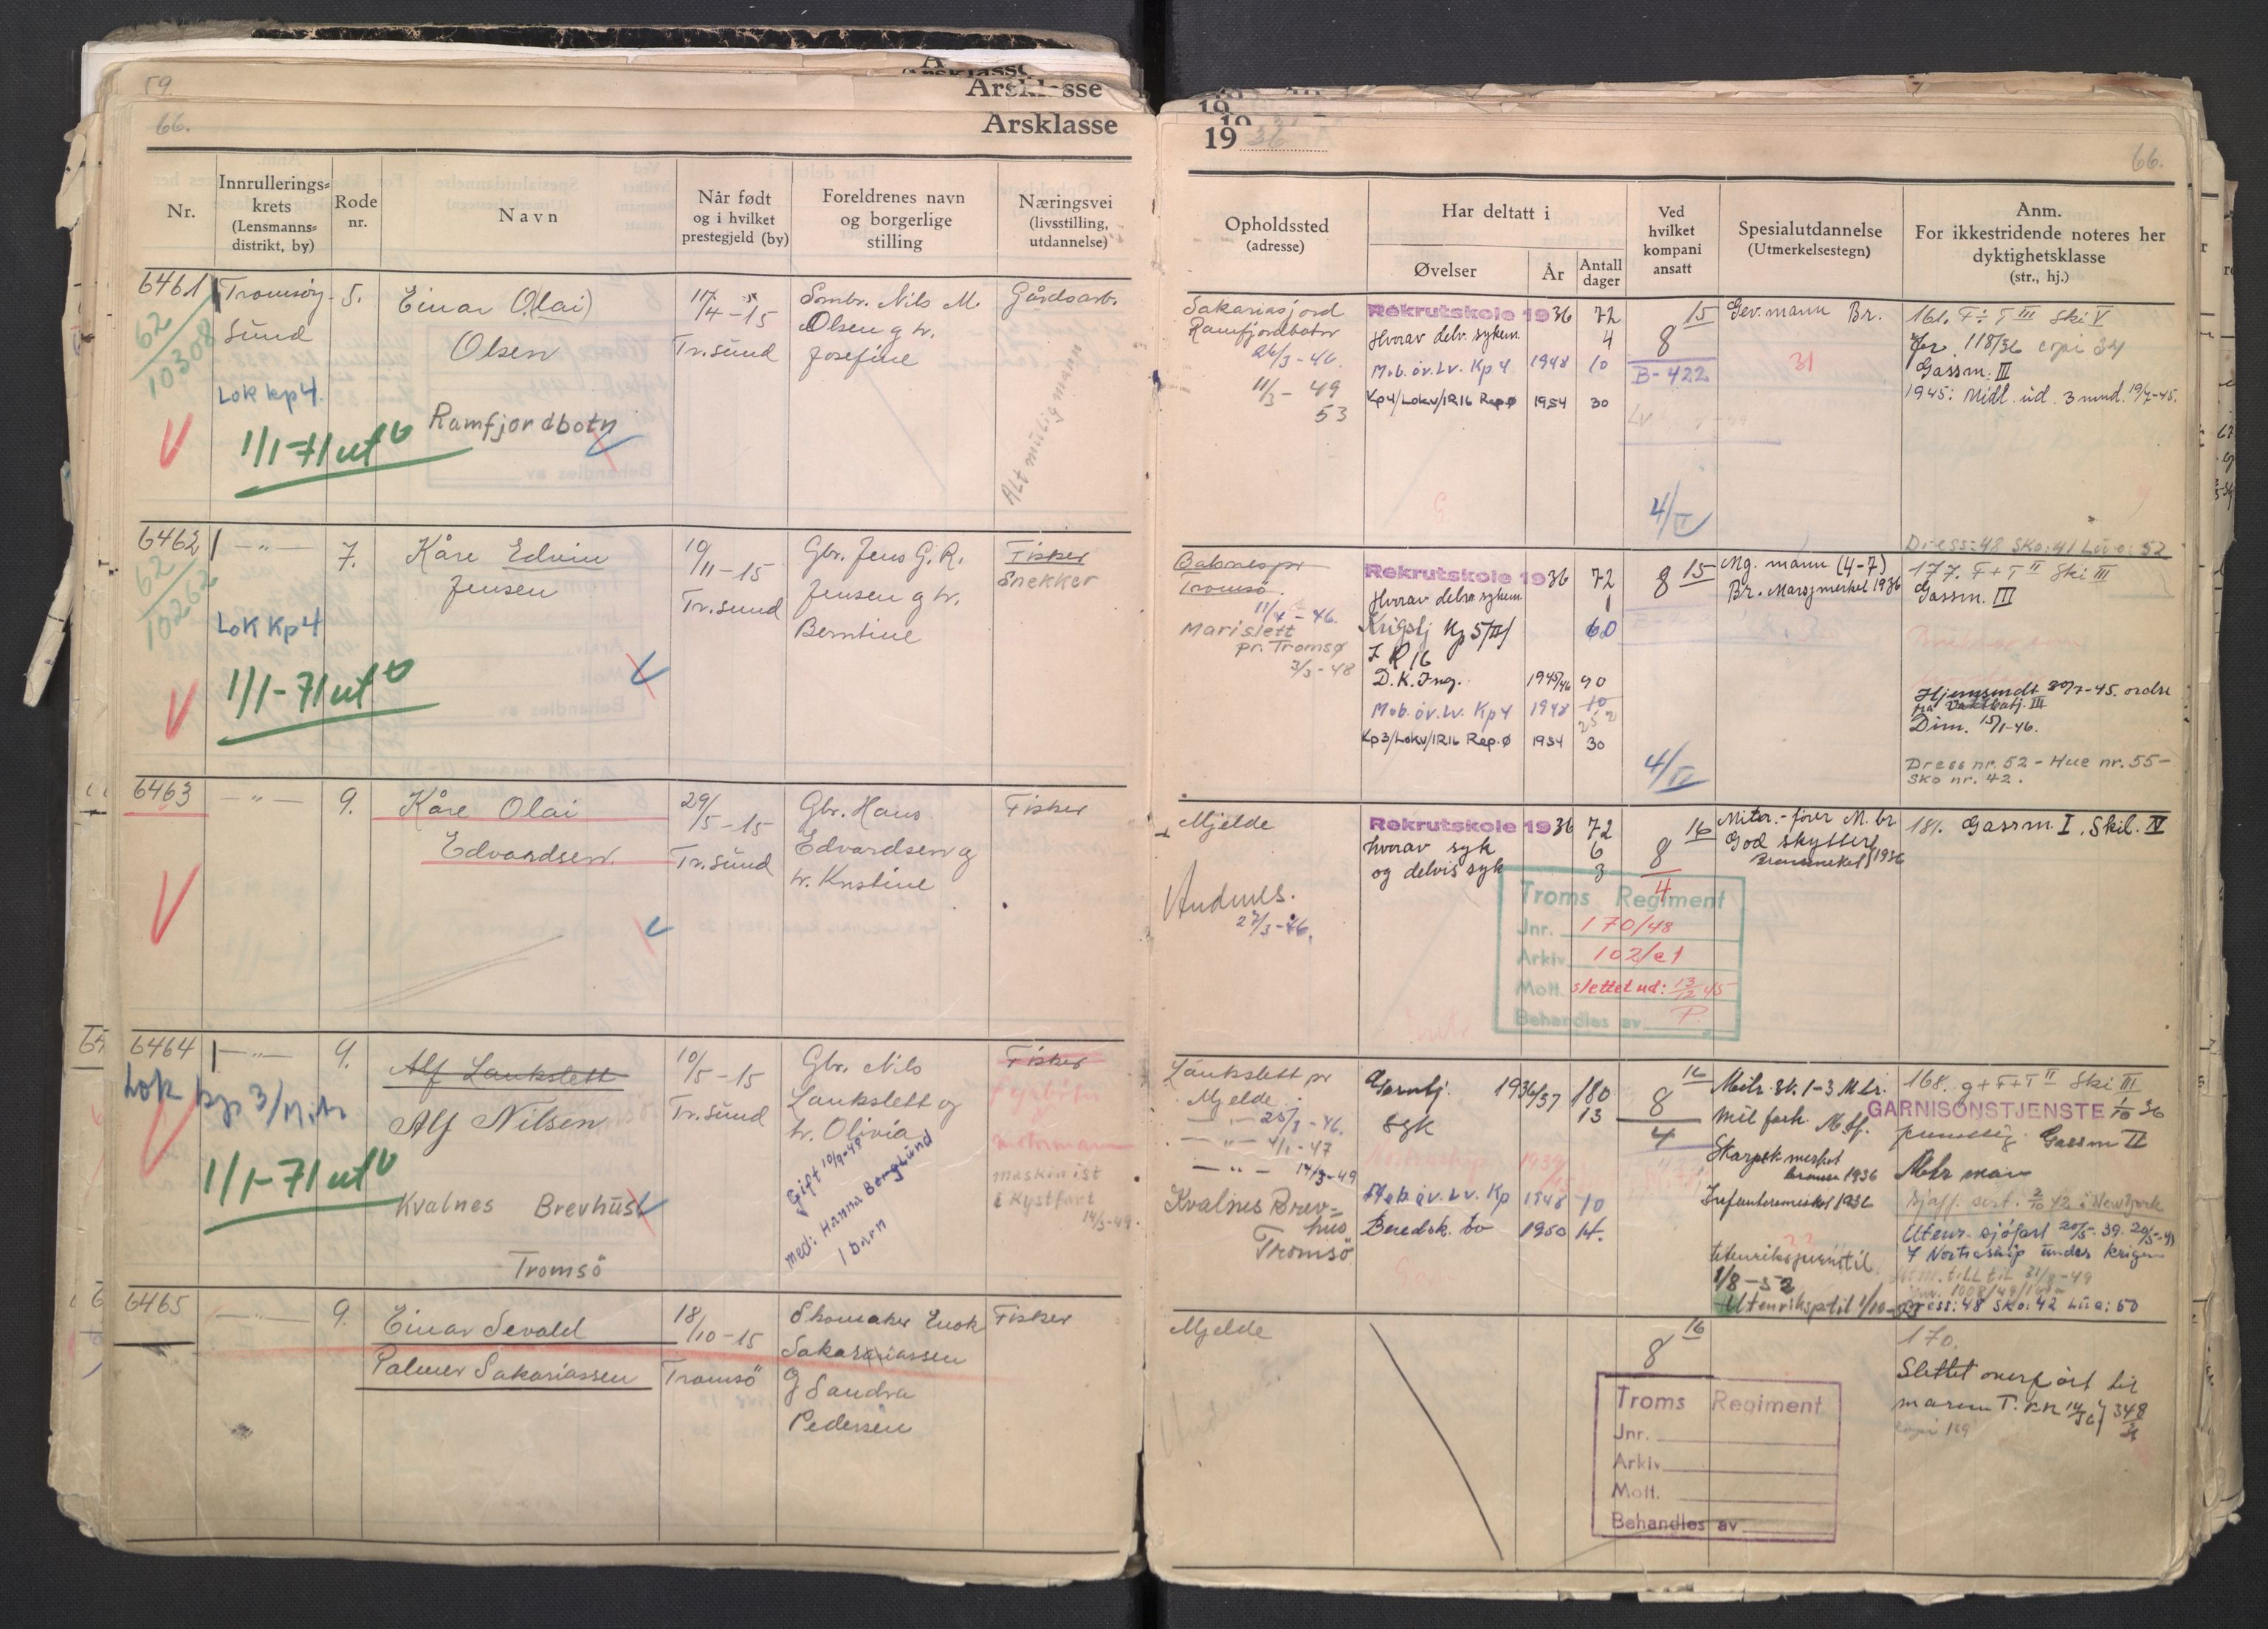 59.
Arsklasse
66.
Arsklasse
Nr.
Innrullerings=
krets
(Lensmanns=
distrikt, by)
Rode
nr.
Navn
Når født
og i hvilket
prestegjeld (by)
Foreldrenes navn
og borgerlige
stilling
Næringsvei
(livsstilling,
utdannelse)
6461
62/10308
Tromsøy-
sund
Lok kp 4.
1/1-71 ut
5.
Einar (Olai)
Olsen
Ramfjordbotn
/4-15
Tr. sund
Nils M.
Olsen g hr.
Josefine
Gårdsarb.
Alt mulig mann
6462
62/10262
— " —
Lok Kp 4
1/1-71 ut
7.
Kåre Edvin
Jensen
10/11-15
Tr. sund
Gbr. Jens G. R.
Jensen g hr.
Berntine
Fisker
Snekker
6463
— " —
9.
Kåre Olai
Edvardsen
29/5-15
Tr. sund
Gbr. Hans
Edvardsen g
hr. Kristine
Fisker
6464
— " —
Lok kp 3/
1/1-71 ut
9.
Alf Laukslett
Alf Nilsen
Kvalnes Brevhus
Tromsö
10/5-15
Tr. sund
Gbr. Nils
Laukslett og
hr. Olivia
Gift 10/9-48
med: Hanna Berglund
1 barn
Fisker
fyrbøter
motormann
maskinist
i Kystfart
14/3-49.
6465
— " —
9.
Einar Sevald
Palmer Sakariassen
18/10-15
Tromsö
Skomaker Enok
Sakariassen
g Sandra
Pedersen
Fisker
19 36
66.
Opholdssted
(adresse)
Har deltatt i
Øvelser
År
Antall
dager
Ved
hvilket
kompani
ansatt
Spesialutdannelse
(Utmerkelsestegn)
Anm.
For ikkestridende noteres her
dyktighetsklasse
(str., hj.)
Sakariasjord
Ramfjordbotn
26/3-46.
11/3-49
53
Rekrutskole 1936 72
Hvorav delv. sykem. 4
Mob. öv. Lv. Kp 4 1948 10
Kp4/Lokv/IR16 Rep.ø 1954 30
15
8
B-422
4/IV
Gev. mann Br.
31
161. F÷T III Ski V
Jnr. 118/36 copi 34
Gassm. III
1945: Midl. ud. 3 mnd. 19/7-45.
Dress: 48 Sko: 41 Lue: 52
Tromsö.
11/4-46.
Marislett
pr. Tromsø
3/3-48
Rekrutskole 1936 72
Hvorav delvs sykem. 1
Krigstj Kp 5/II/ 60
I R 16
D. K. Ing. 1945/46 90
Mob. öv. Lv. Kp 4 1948 10
252
Kp3/Lokv/IR16 Rep.ø 1954 30
15
8
4/IV
Mg. mann (4-7)
Br. Marsjmerket 1936
177. F+T II Ski III
Gassm. III
Hjemsendt 20/7-45. ordre
fra Vaktbatj. III
Dim. 15/1-46.
Dress nr. 52 - Hue nr. 55 -
Sko nr. 42.
Mjelde
Andnes.
27/3-46.
Rekrutskole 1936 72
hvorav syk 6
og delvis syk 3
16
8
4
Mitr.-fører M. br
God skytter
Bronsemerket 1936
181. Gassm. I. Skil. IV
Troms Regiment
Jnr. 170/48
Arkiv 102/e1
Mott. slettet ud: 13/12 45
Behandles av P.
Laukslett pr
Mjelde
— " — 25/3-46.
— " — 4/1-47
— " — 14/3-49
Kvalnes Brev-
hus
Tromsö
Garntj. 1936/37 180
syk 13
1939
Mob. öv. Lv. Kp 1948 10
Beredsk. bo 1950 14.
16
8
4
Mitr. sk. 1-3 M br.
Mil fork.
Skarpsk. merket
bronse 1936
Infanterimerket 1936
Utenrikspermtil.
1/8-52
Utenriksptil 1/10-53
168. g+F+T II Ski III
GARNISONSTJENSTE 1/10 36
punktlig. Gassm II
Mtr man
i New York
Utenr. sjöfart 20/5-39. 20/5-45
I Nortraship under krigen
Jnr. 1008/49/
Dress: 48 Sko: 42 Lue: 50
Mjelde
16
8
170.
Slettet overfört til
marinen T.
copi 169
Troms Regiment
Jnr.
Arkiv
Mott.
Behandles av